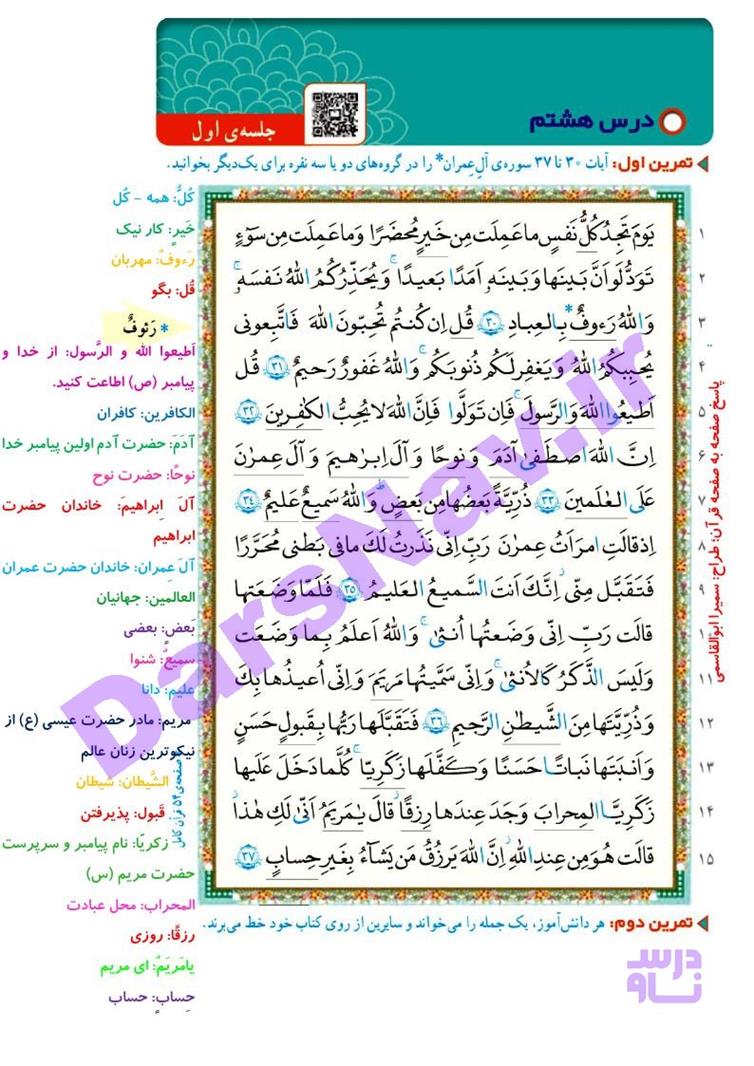 درس هشتم
جلسه‌ی اول
تمرین اول: آیات ۳۰ تا ۳۷ سوره‌ی آل‌عِمران* را در گروه‌های دو یا سه نفره برای یک‌دیگر بخوانید.
۱ یَومَ تَجِدُ کُلُّ نَفسٍ ما عَمِلَت مِن خَیرٍ مُحضَرًا وَ ما عَمِلَت مِن سوءٍ
۲ تَوَدُّ لَو اَنَّ بَینَها وَ بَینَهٓ اَمَدًا بَعیدًا ۗ وَ یُحَذِّرُکُمُ اللّٰهُ نَفسَهٗ ۗ
۳ وَ اللّٰهُ رَءوفٌ* بِالعِبادِ ۳۰ قُل اِن کُنتُم تُحِبّونَ اللّٰهَ فَاتَّبِعونی
۴ یُحبِبکُمُ اللّٰهُ وَ یَغفِر لَکُم ذُنوبَکُم ۗ وَ اللّٰهُ غَفورٌ رَحیمٌ ۳۱ قُل
۵ اَطیعُوا اللّٰهَ وَ الرَّسولَ ۖ فَاِن تَوَلَّوا فَاِنَّ اللّٰهَ لا یُحِبُّ الکٰفِرینَ ۳۲
۶ اِنَّ اللّٰهَ اصطَفیٰٓ آدَمَ وَ نوحًا وَ آلَ اِبرٰهیمَ وَ آلَ عِمرٰنَ
۷ عَلَی العٰلَمینَ ۳۳ ذُرِّیَّةً بَعضُها مِن بَعضٍ ۗ وَ اللّٰهُ سَمیعٌ عَلیمٌ ۳۴
۸ اِذ قالَتِ امرَاَتُ عِمرٰنَ رَبِّ اِنّی نَذَرتُ لَکَ ما فی بَطنی مُحَرَّرًا
۹ فَتَقَبَّل مِنّی ۖ اِنَّکَ اَنتَ السَّمیعُ العَلیمُ ۳۵ فَلَمّا وَضَعَتها
۱۰ قالَت رَبِّ اِنّی وَضَعتُها اُنثیٰ ۗ وَ اللّٰهُ اَعلَمُ بِما وَضَعَت
۱۱ وَ لَیسَ الذَّکَرُ کَالاُنثیٰ ۖ وَ اِنّی سَمَّیتُها مَریَمَ وَ اِنّی اُعیذُها بِکَ
۱۲ وَ ذُرِّیَّتَها مِنَ الشَّیطٰنِ الرَّجیمِ ۳۶ فَتَقَبَّلَها رَبُّها بِقَبولٍ حَسَنٍ
۱۳ وَ اَنبَتَها نَباتًا حَسَنًا وَ کَفَّلَها زَکَرِیّا ۖ کُلَّما دَخَلَ عَلَیها
۱۴ زَکَرِیَّا المِحرابَ وَجَدَ عِندَها رِزقًا ۖ قالَ یا مَریَمُ اَنّیٰ لَکِ هٰذا ۖ
۱۵ قالَت هُوَ مِن عِندِ اللّٰهِ ۖ اِنَّ اللّٰهَ یَرزُقُ مَن یَشآءُ بِغَیرِ حِسابٍ ۳۷
تمرین دوم: هر دانش‌آموز، یک جمله را می‌خواند و سایرین از روی کتاب خود خط می‌برند.
کُلُّ: همه - کُل
خَیرٍ: کار نیک
رَءوفٌ: مهربان
قُل: بگو
* رَئوفٌ
اَطیعوا الله و الرَّسول: از خدا و
پیامبر (ص) اطاعت کنید.
الکافرین: کافران
آدَمَ: حضرت آدم اولین پیامبر خدا
نوحًا: حضرت نوح
آلَ اِبراهیمَ: خاندان حضرت
ابراهیم
آل عِمران: خاندان حضرت عمران
العالمین: جهانیان
بَعضٍ: بعضی
سَمیعٌ: شنوا
علیم: دانا
مریم: مادر حضرت عیسی (ع) از
نیکوترین زنان عالم
الشَّیطان: شیطان
قَبول: پذیرفتن
زکریّا: نام پیامبر و سرپرست
حضرت مریم (س)
المحراب: محل عبادت
رزقًا: روزی
یامَریَمُ: ای مریم
حِسابٍ: حساب
صفحه‌ی ۵۴ قرآن کامل
پاسخ صفحه به صفحه قرآن: طراح: سمیرا ابوالقاسمی
DarsNav.ir
درس
ناو